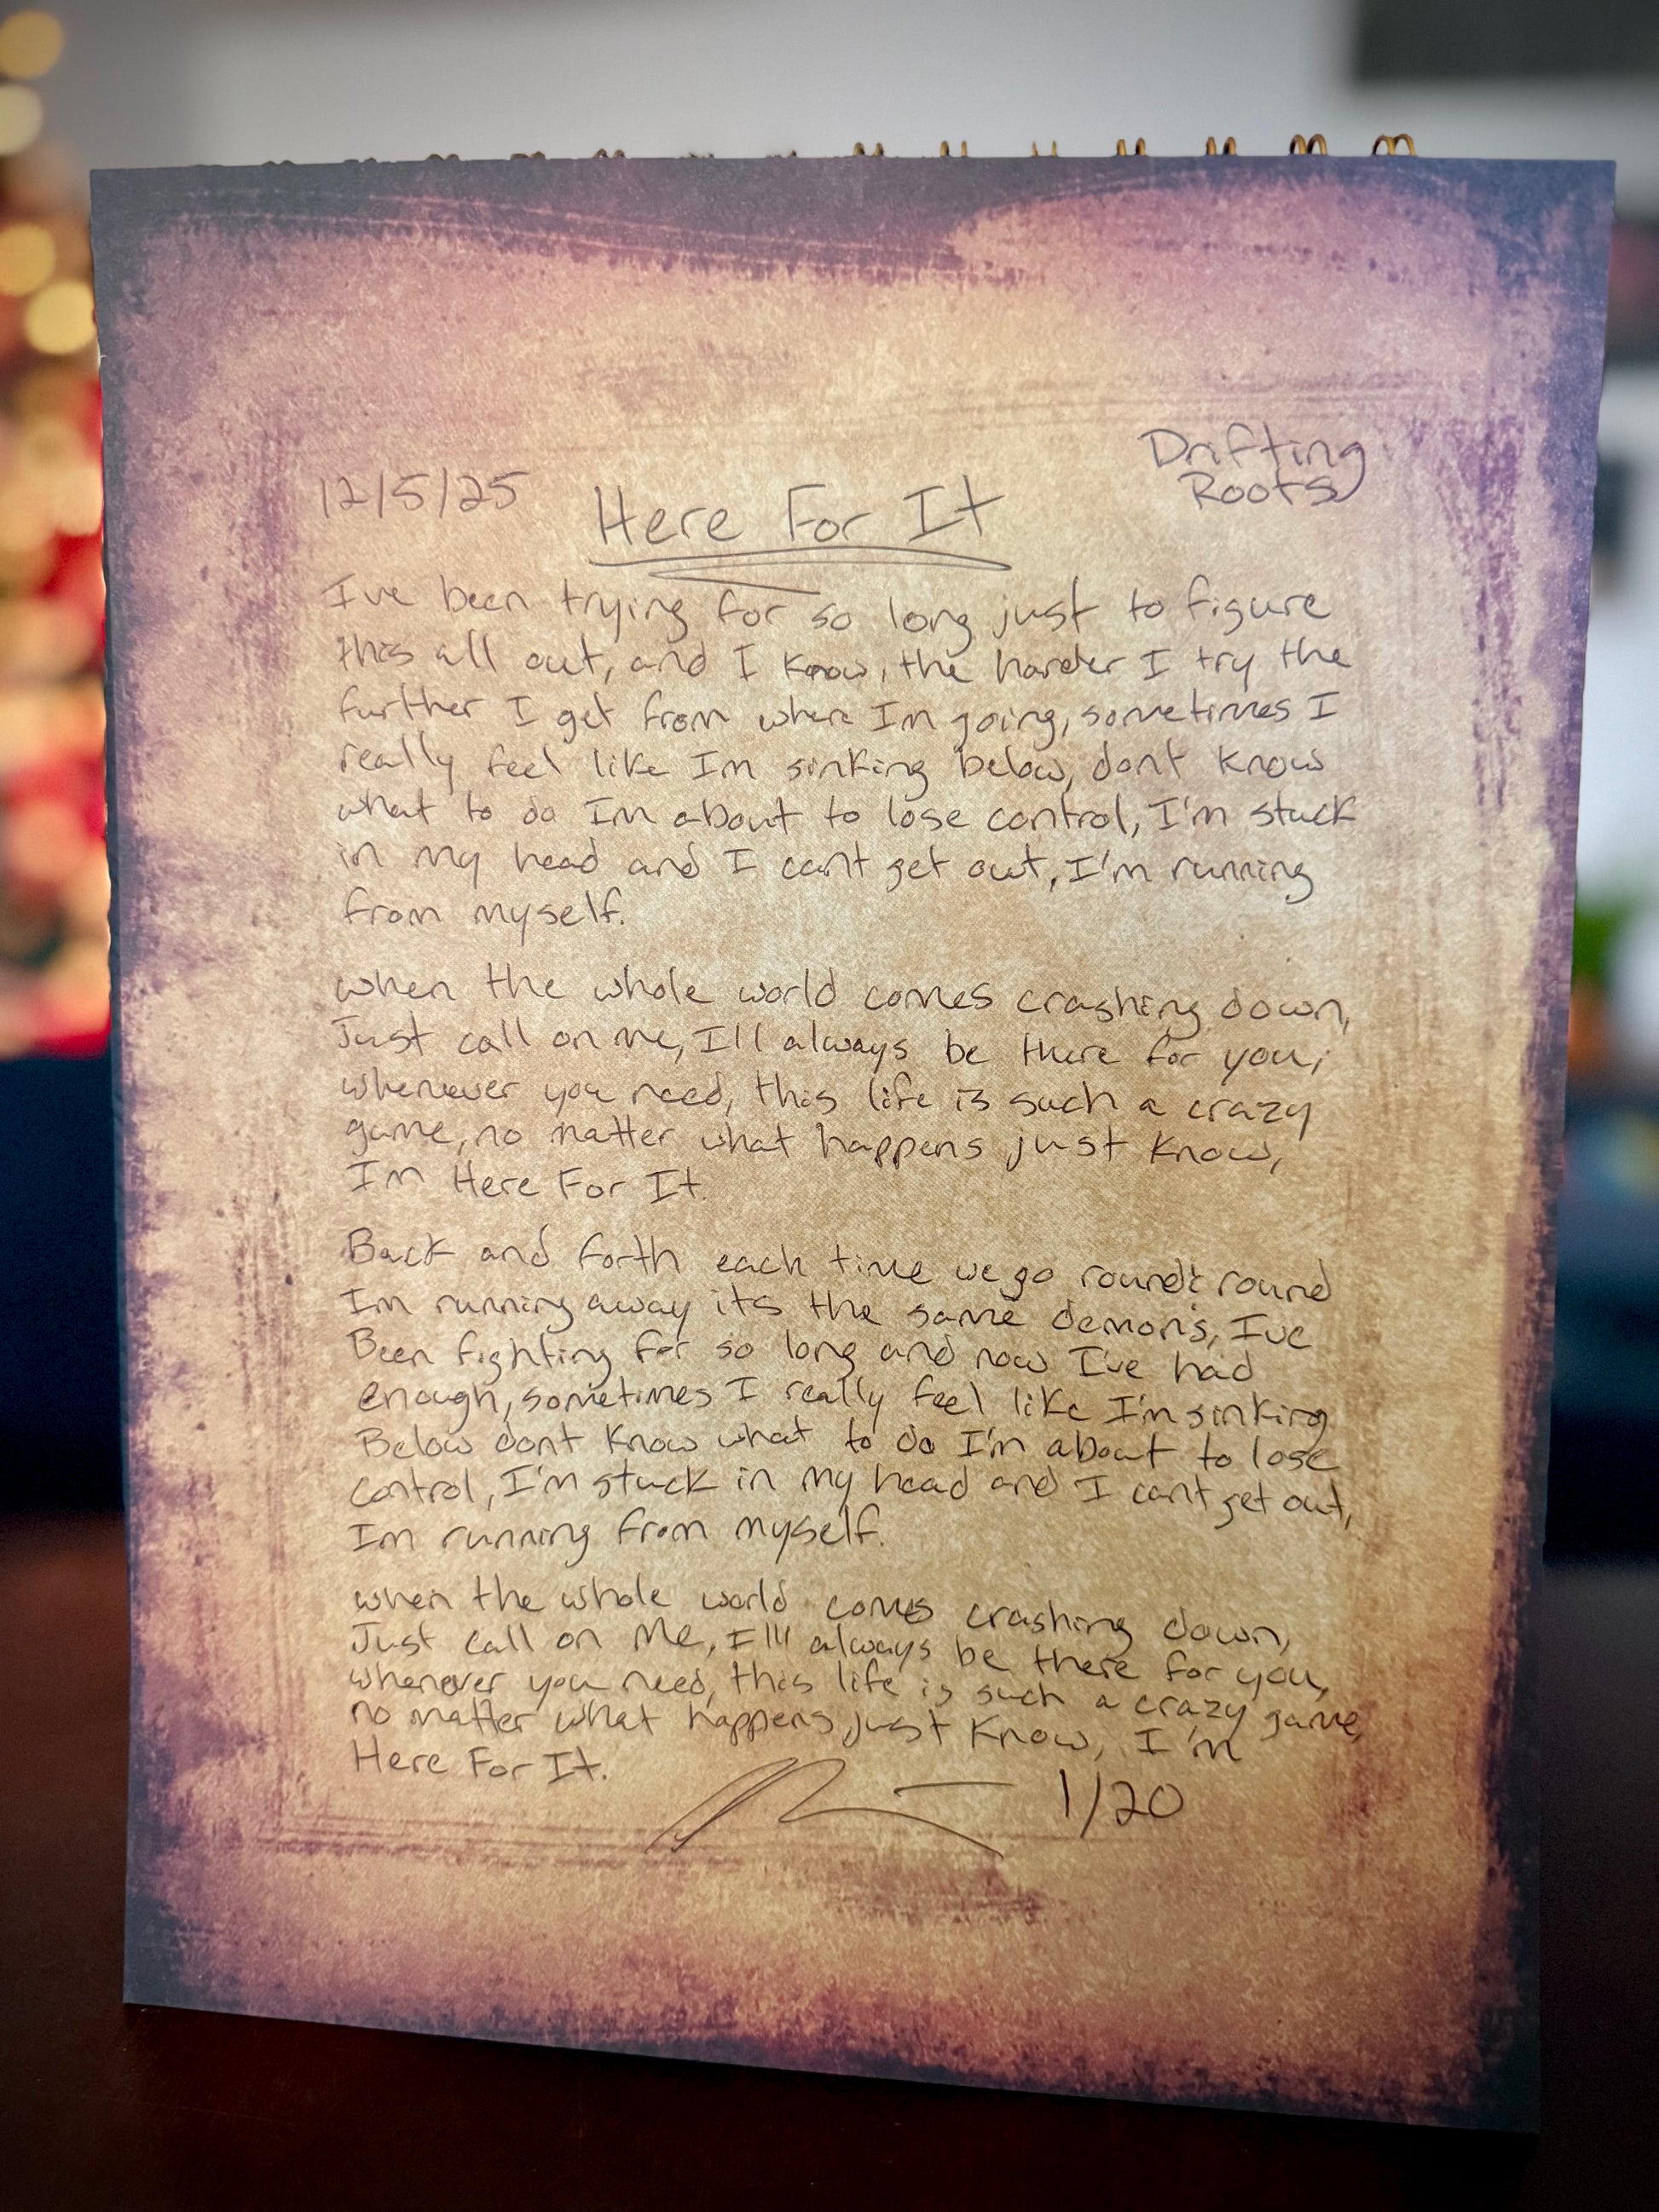 12/5/25
Drifting
Roots
Here For It
I've been trying for so long just to figure
this all out, and I know, the harder I try the
further I get from where Im going, sometimes I
really feel like Im sinking below, dont know
what to do Im about to lose control, I'm stuck
in my head and I can't get out, I'm running
from myself.
when the whole world comes crashing down,
Just call on me, I'll always be there for you,
whenever you need, this life is such a crazy
game, no matter what happens just know,
Im Here For It.
Back and forth each time we go round & round
Im running away its the same demons, I've
Been fighting for so long and now I've had
enough, sometimes I really feel like I'm sinking
Below dont know what to do I'm about to lose
control, I'm stuck in my head and I can't get out,
Im running from myself.
when the whole world comes crashing down,
Just call on Me, I'll always be there for you,
whenever you need, this life is such a crazy game,
no matter what happens just know, I'm
Here For It.
1/20